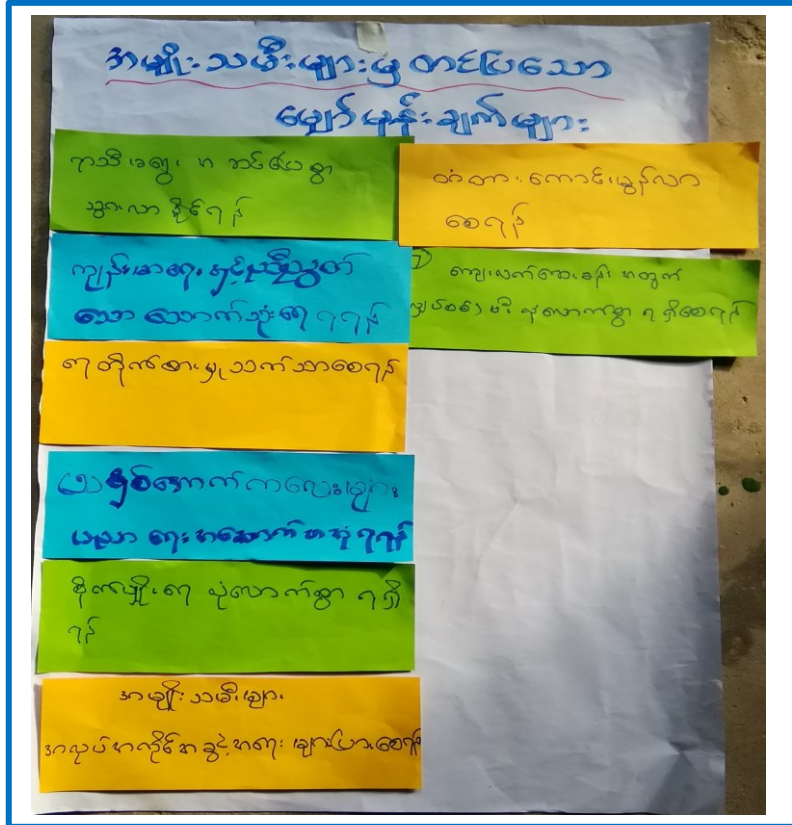 အမျိုးသမီးများမှ တင်ပြသော
မျှော်မှန်းချက်များ
ရာသီမရွေး အဆင်ပြေစွာ
သွားလာနိုင်ရန်
ကျန်းမာရေးနှင့်ညီညွတ်
သော သောက်သုံးရေ ရရန်
ရေတိုက်စားမှုသက်သာစေရန်
အောက်ကလေးများ
ပညာရေးအထောက်အကူရရန်
စိုက်ပျိုးရေ လုံလောက်စွာ ရရှိ
ရန်
အမျိုးသမီးများ
အလုပ်အကိုင်အခွင့်အရေးများပြားစေရန်
တံတားကောင်းမွန်လာ
စေရန်
ကျေးလက်ဆေးခန်းအတွက်
လျှပ်စစ်မီး လုံလောက်စွာ ရရှိစေရန်